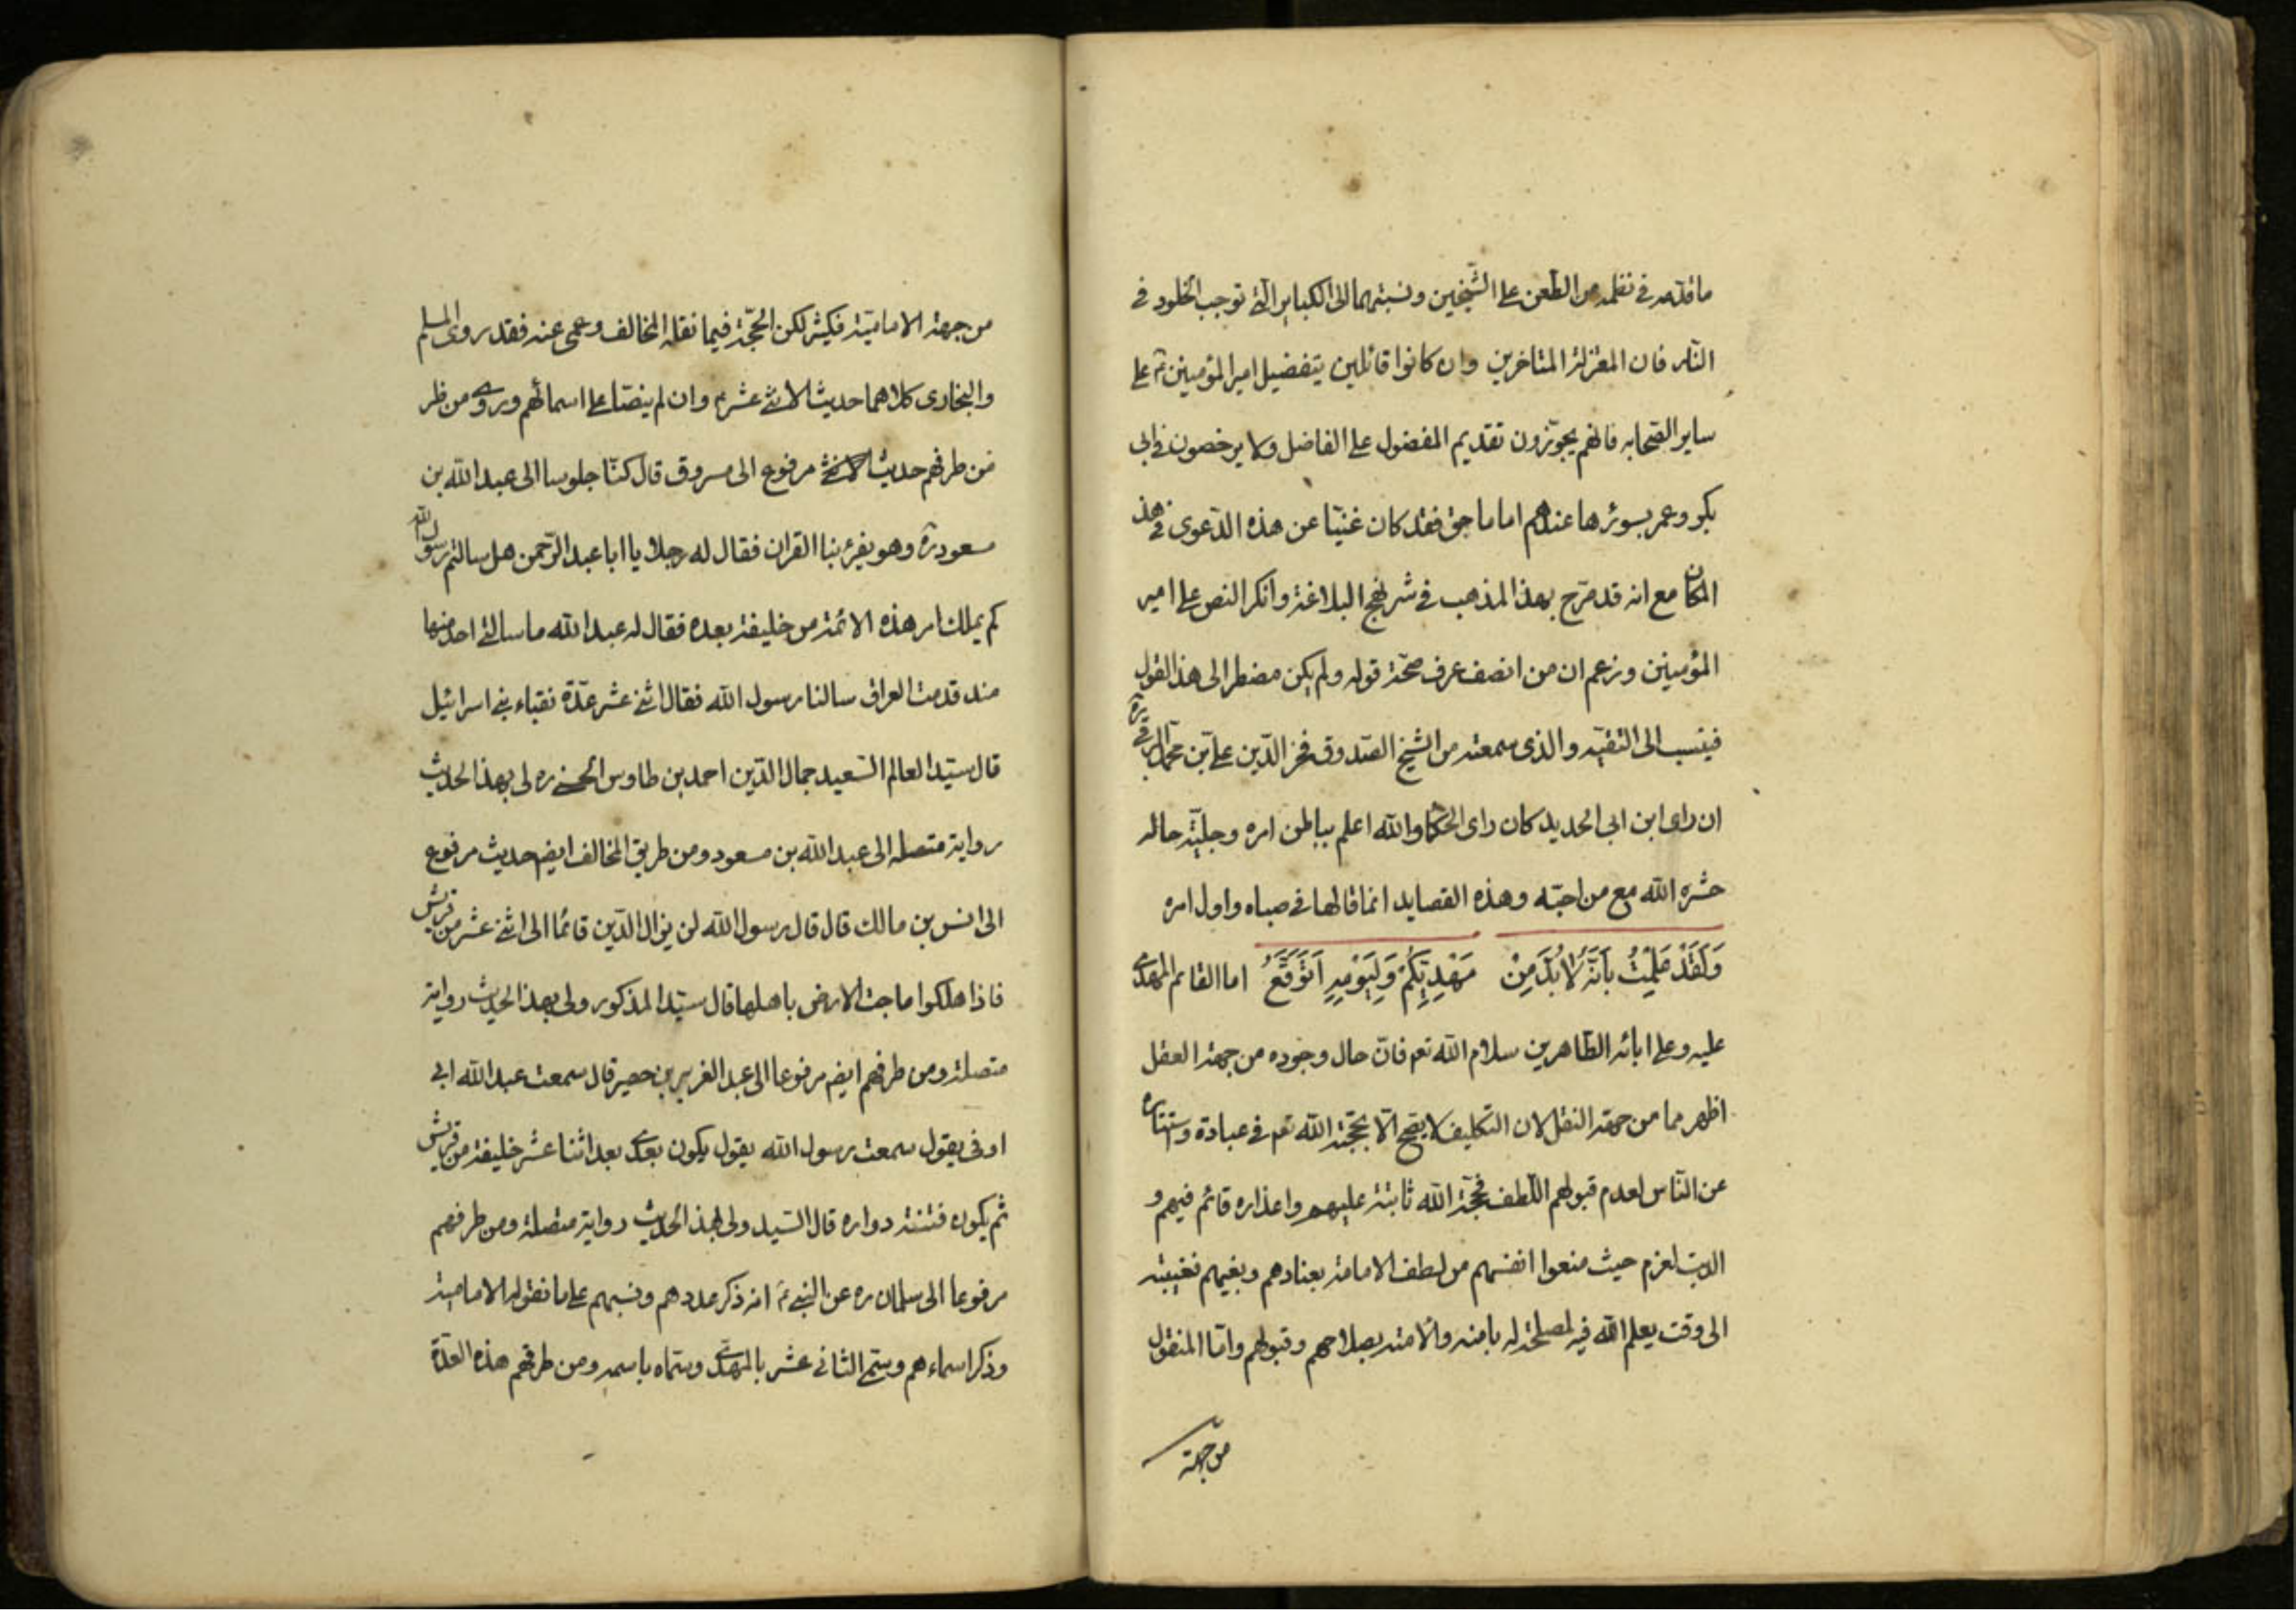 ما قدمه في نظمه من الطعن على الشيخين ونسبتهما الى الكباير التي توجب الخلود في
النار فان المعتزلة المتاخرين وان كانوا قائلين بتفضيل امير المؤمنين ع على
ساير الصحابه فانهم يجوزون تقديم المفضول على الفاضل ولا يرخصون في ابي
بكر وعمر بسوء لانها عندهم اماما حق فقد كان غنيا عن هذه الدعوى في هذ
المكان مع انه قد صرح بهذا المذهب في شرح نهج البلاغة وانكر النص على امير
المؤمنين وزعم ان من انصف عرف صحة قوله ولم يكن مضطرا الى هذا القول
فينسب الى التقيه والذي سمعته من الشيخ الصدوق فخر الدين علي بن محمد
ان راى ابن ابي الحديد كان راى الحكما والله اعلم بباطن امره وجلية حاله
حشره الله مع من احبه وهذه القصايد انما قالها في صباه واول امره
وَلَقَدْ عَلِمْتُ بِاَنَّهُ لَابُدَّ مِنْ مَهْدِيِّكُمْ وَلِيَوْمِهِ اَتَوَقَّعُ اما القايم المهدي
عليه وعلى ابائه الطاهرين سلام الله تع فان حال وجوده من جهة العقل
اظهر مما من جهة النقل لان التكليف لا يصح الا بحجة الله تع في عبادة واستتاره
عن الناس لعدم قبولهم اللطف فحجة الله ثابتة عليهم واعذاره قائم فيهم و
لهم حيث منعوا انفسهم من لطف الامامة بعنادهم وبغيهم فغيبته
الى وقت يعلم الله فيه لمصلحة له بامنه والامته بصلاحهم وقبولهم واما المنقول
من جهة
من جهة الامامية فكثير لكن الحجة فيما نقله المخالف وعمى عنه فقد روى المسلم
والبخارى كلاهما حديث الاثني عشر ع وان لم ينصا على اسمائهم وروى من طر
من طرفهم حديث الاثني مرفوع الى مسروق قال كنا جلوسا الى عبد الله بن
مسعود ره وهو يقرء بنا القران فقال له رجلا يا ابا عبد الرحمن هل سالتم رسول الله
كم يملك امر هذه الائمة من خليفة بعده فقال له عبد الله ما سالني احد منها
منذ قدمت العراق سالنا رسول الله فقال اثني عشر عدة نقباء بني اسرائيل
قال سيد العالم السعيد جمال الدين احمد بن طاوس الحسني ره لي بهذا الحديث
رواية متصله الى عبد الله بن مسعود ومن طريق المخالف ايضم حديث مرفوع
الى انس بن مالك قال قال رسول الله لن يزال الدين قائما الى اثني عشر من قريش
فاذا هلكوا ماجت الارض باهلها قال سيد المذكور ولي بهذا الحديث رواية
متصلة ومن طرفهم ايضم مرفوعا الى عبد العزيز بن حصير قال سمعت عبد الله ابي
اوفى يقول سمعت رسول الله يقول يكون بعدي بعد اثنا عشر خليفة من قريش
ثم يكون فتنة دواره قال السيد ولي لهذا الحديث رواية متصلة ومن طرفهم
مرفوعا الى سلمان ره عن النبي ع انه ذكر عددهم ونسبهم على ما نقوله الامامية
وذكر اسماءهم وسمى الثاني عشر بالمهدي وسماه باسمه ومن طرفهم هذه العدة